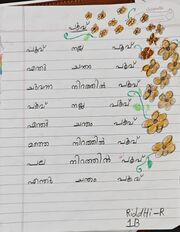 പൂവ്
പൂവ് നല്ല പൂവ്
എന്തു ചന്തം പൂവ്
ചുവന്ന നിറത്തിൽ പൂവ്
പൂവ് നല്ല പൂവ്
എന്തു ചന്തം പൂവ്
മഞ്ഞ നിറത്തിൽ പൂവ്
പല നിറത്തിൽ പൂവ്
എന്തു ചന്തം പൂവ്
Riddhi-R
1B